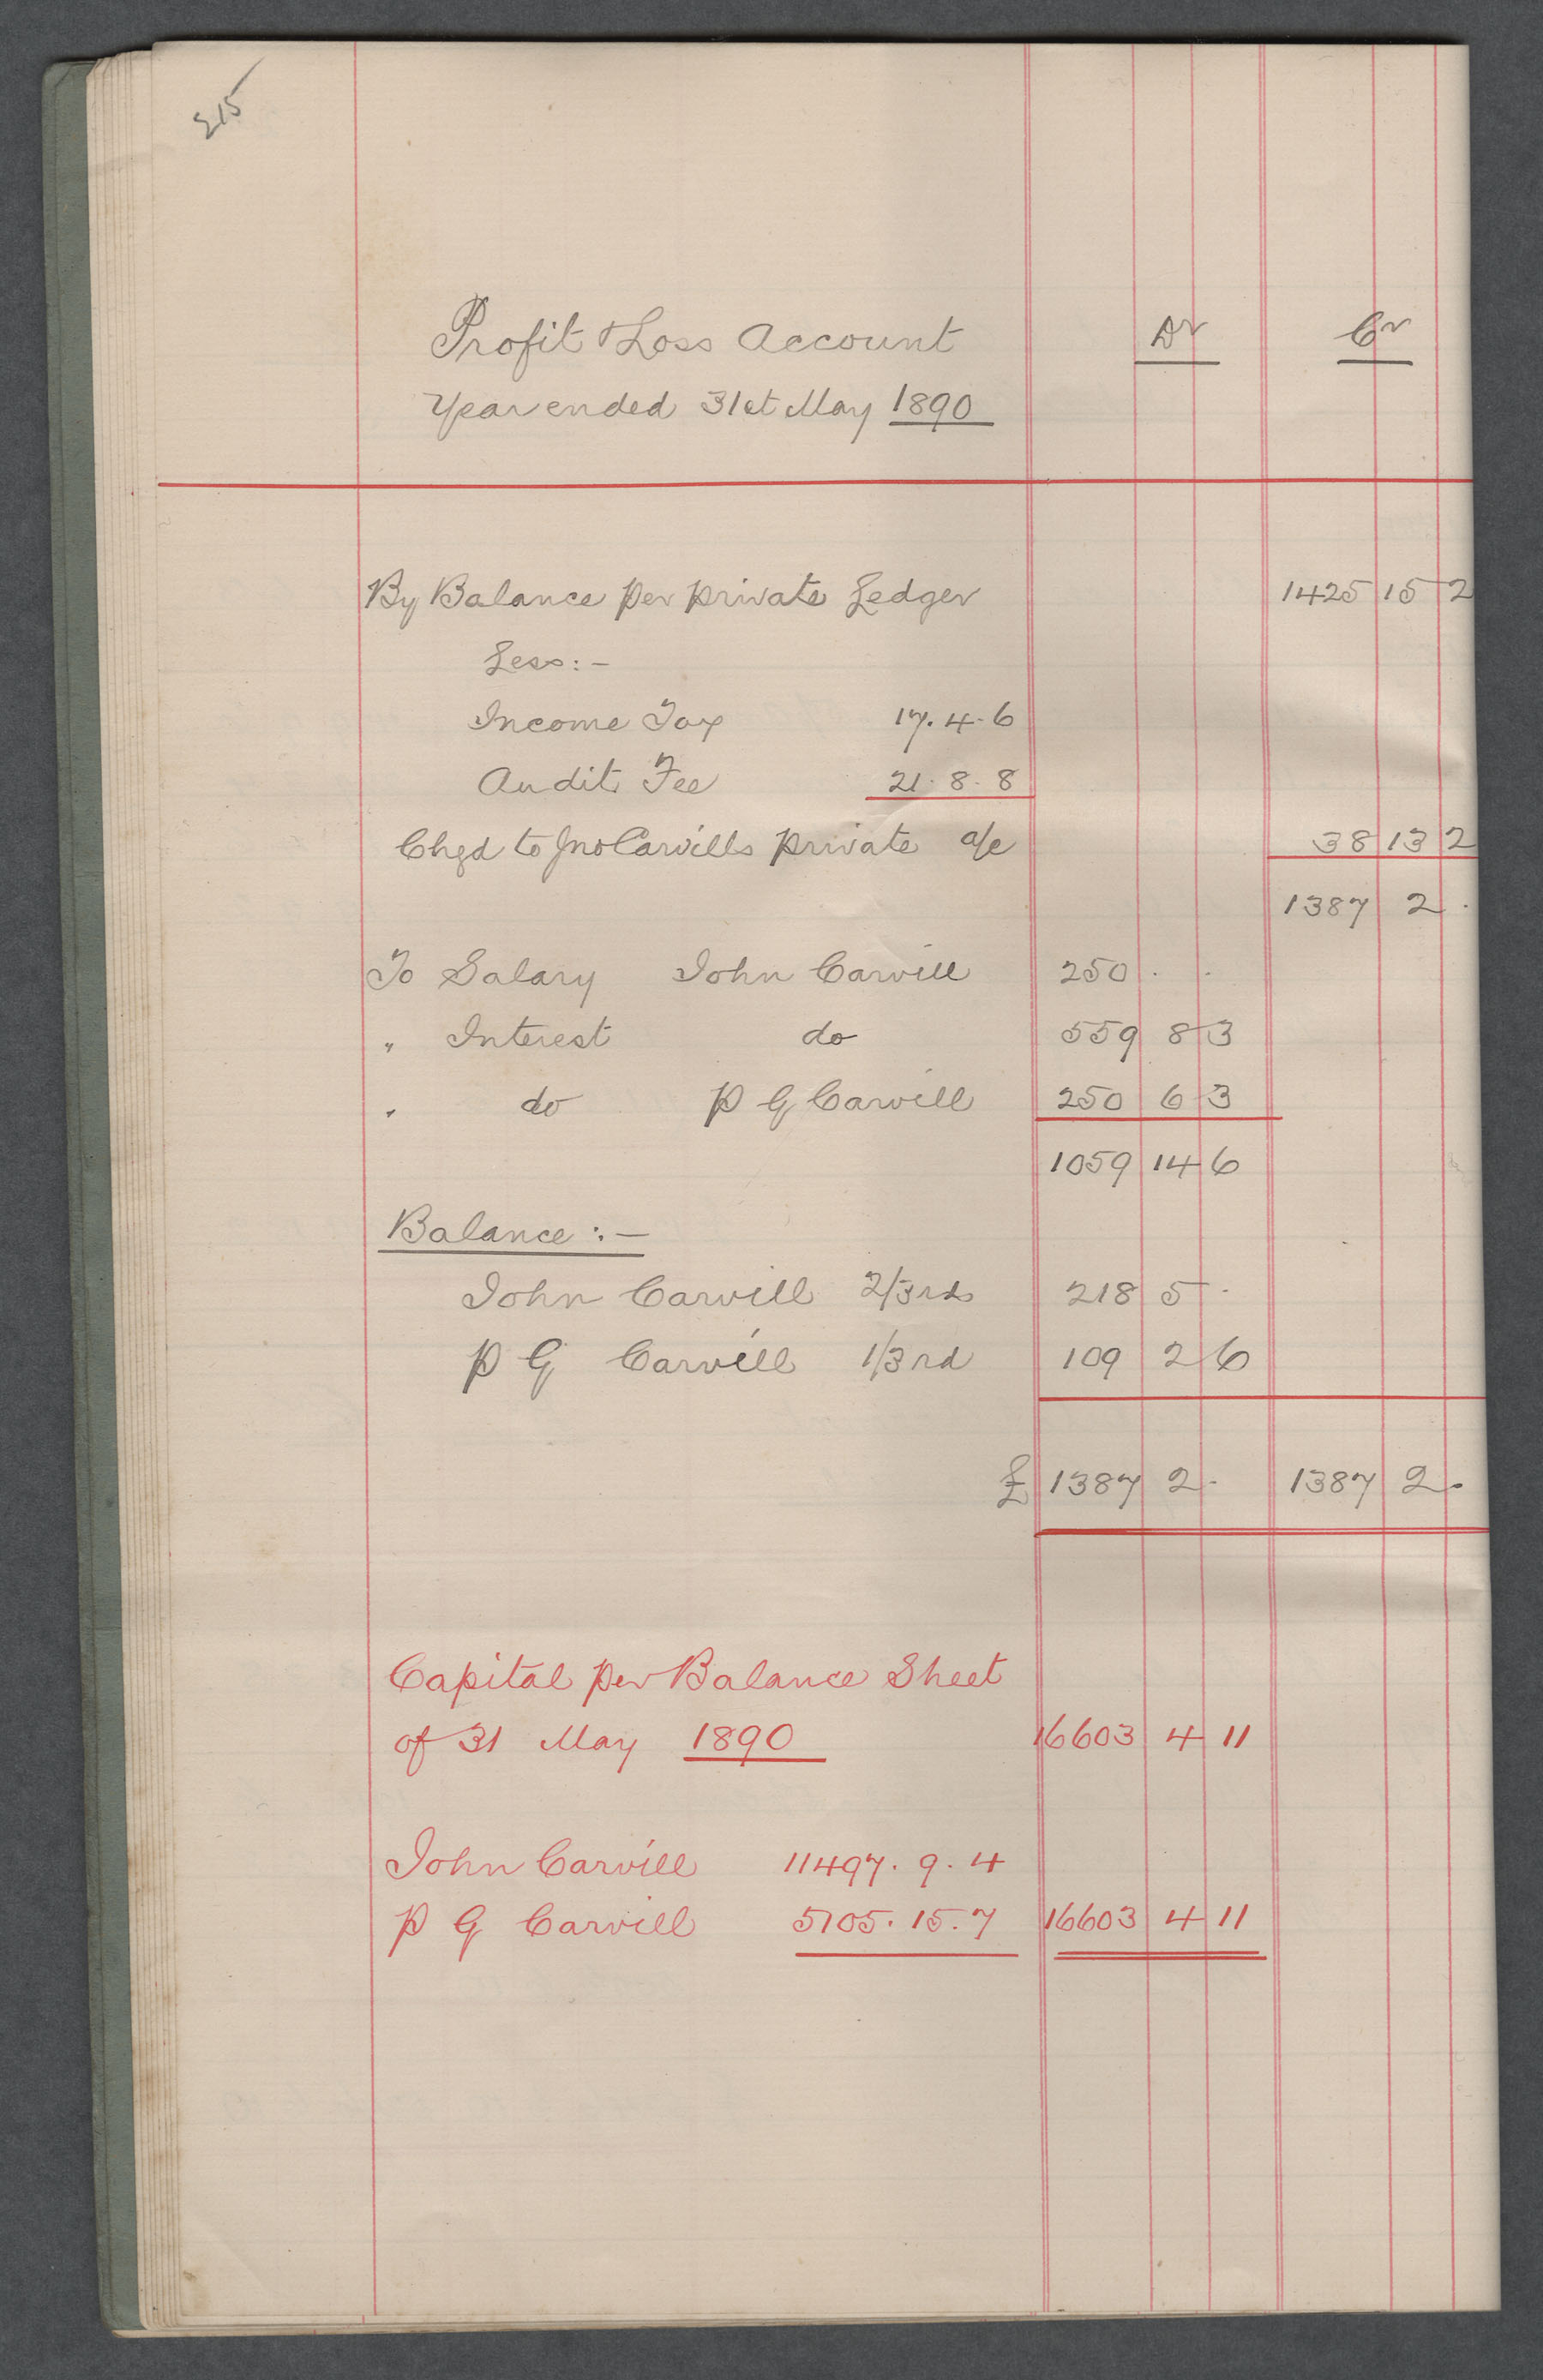 215
Profit & Loss Account Dr Cr
Year ended 31st May 1890
By Balance per private Ledger 1425 15 2
Less:-
Income Tax 17.4.6
Audit Fee 21.8.8
Chgd to Jno Carvills private a/c 38 13 2
1387 2 .
To Salary John Carvill 250 . .
" Interest do 559 8 3
" do P G Carvill 250 6 3
1059 14 6
Balance :-
John Carvill 2/3rds 218 5 .
P G Carvill 1/3rd 109 2 6
£ 1387 2 . 1387 2 .
Capital per Balance Sheet
of 31 May 1890 16603 4 11
John Carvill 11497.9.4
P G Carvill 5105.15.7 16603 4 11